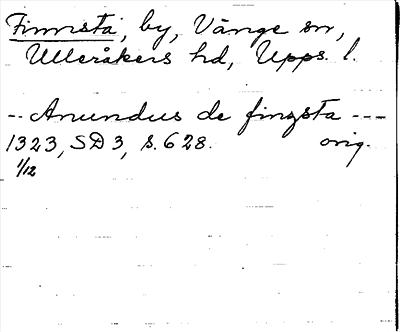 Finnsta, by, Vänge sn,
Ulleråkers hd, Upps. l.
-- Anundus de fingsta ---
1323, SD 3, s. 628. orig.
1/12